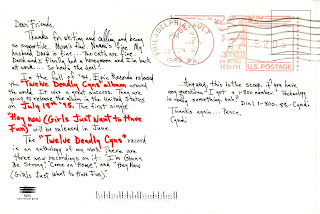 Dear Friends,
Thanks for writing and calling and being
so supportive. Mom's fine. Nanna's fine. My
husband David is fine... the cats are fine.
David and I finally had a honeymoon and I'm back
at work.... So here's the deal:
In the fall of '94, Epic Records released
the "Twelve Deadly Cyns" album around
the world. It was a great success. They are
going to release the album in the United States
on July 18th '95. The first single
"Hey now (Girls Just Want to Have
Fun)" will be released in June.
The "Twelve Deadly Cyns" record
is an anthology of my work. There are
three new recordings on it: I'm Gonna
Be Strong, Come on Home, and "Hey Now
(Girls Just Want to Have Fun)."
Anyway, this is the scoop. if you have
any questions, I got a 1-800 number. Technology
is really something, huh? Dial 1-800-
Thanks again... Peace,
Cyndi
PHILADELPHIA PA
1995
U.S. POSTAGE
epic